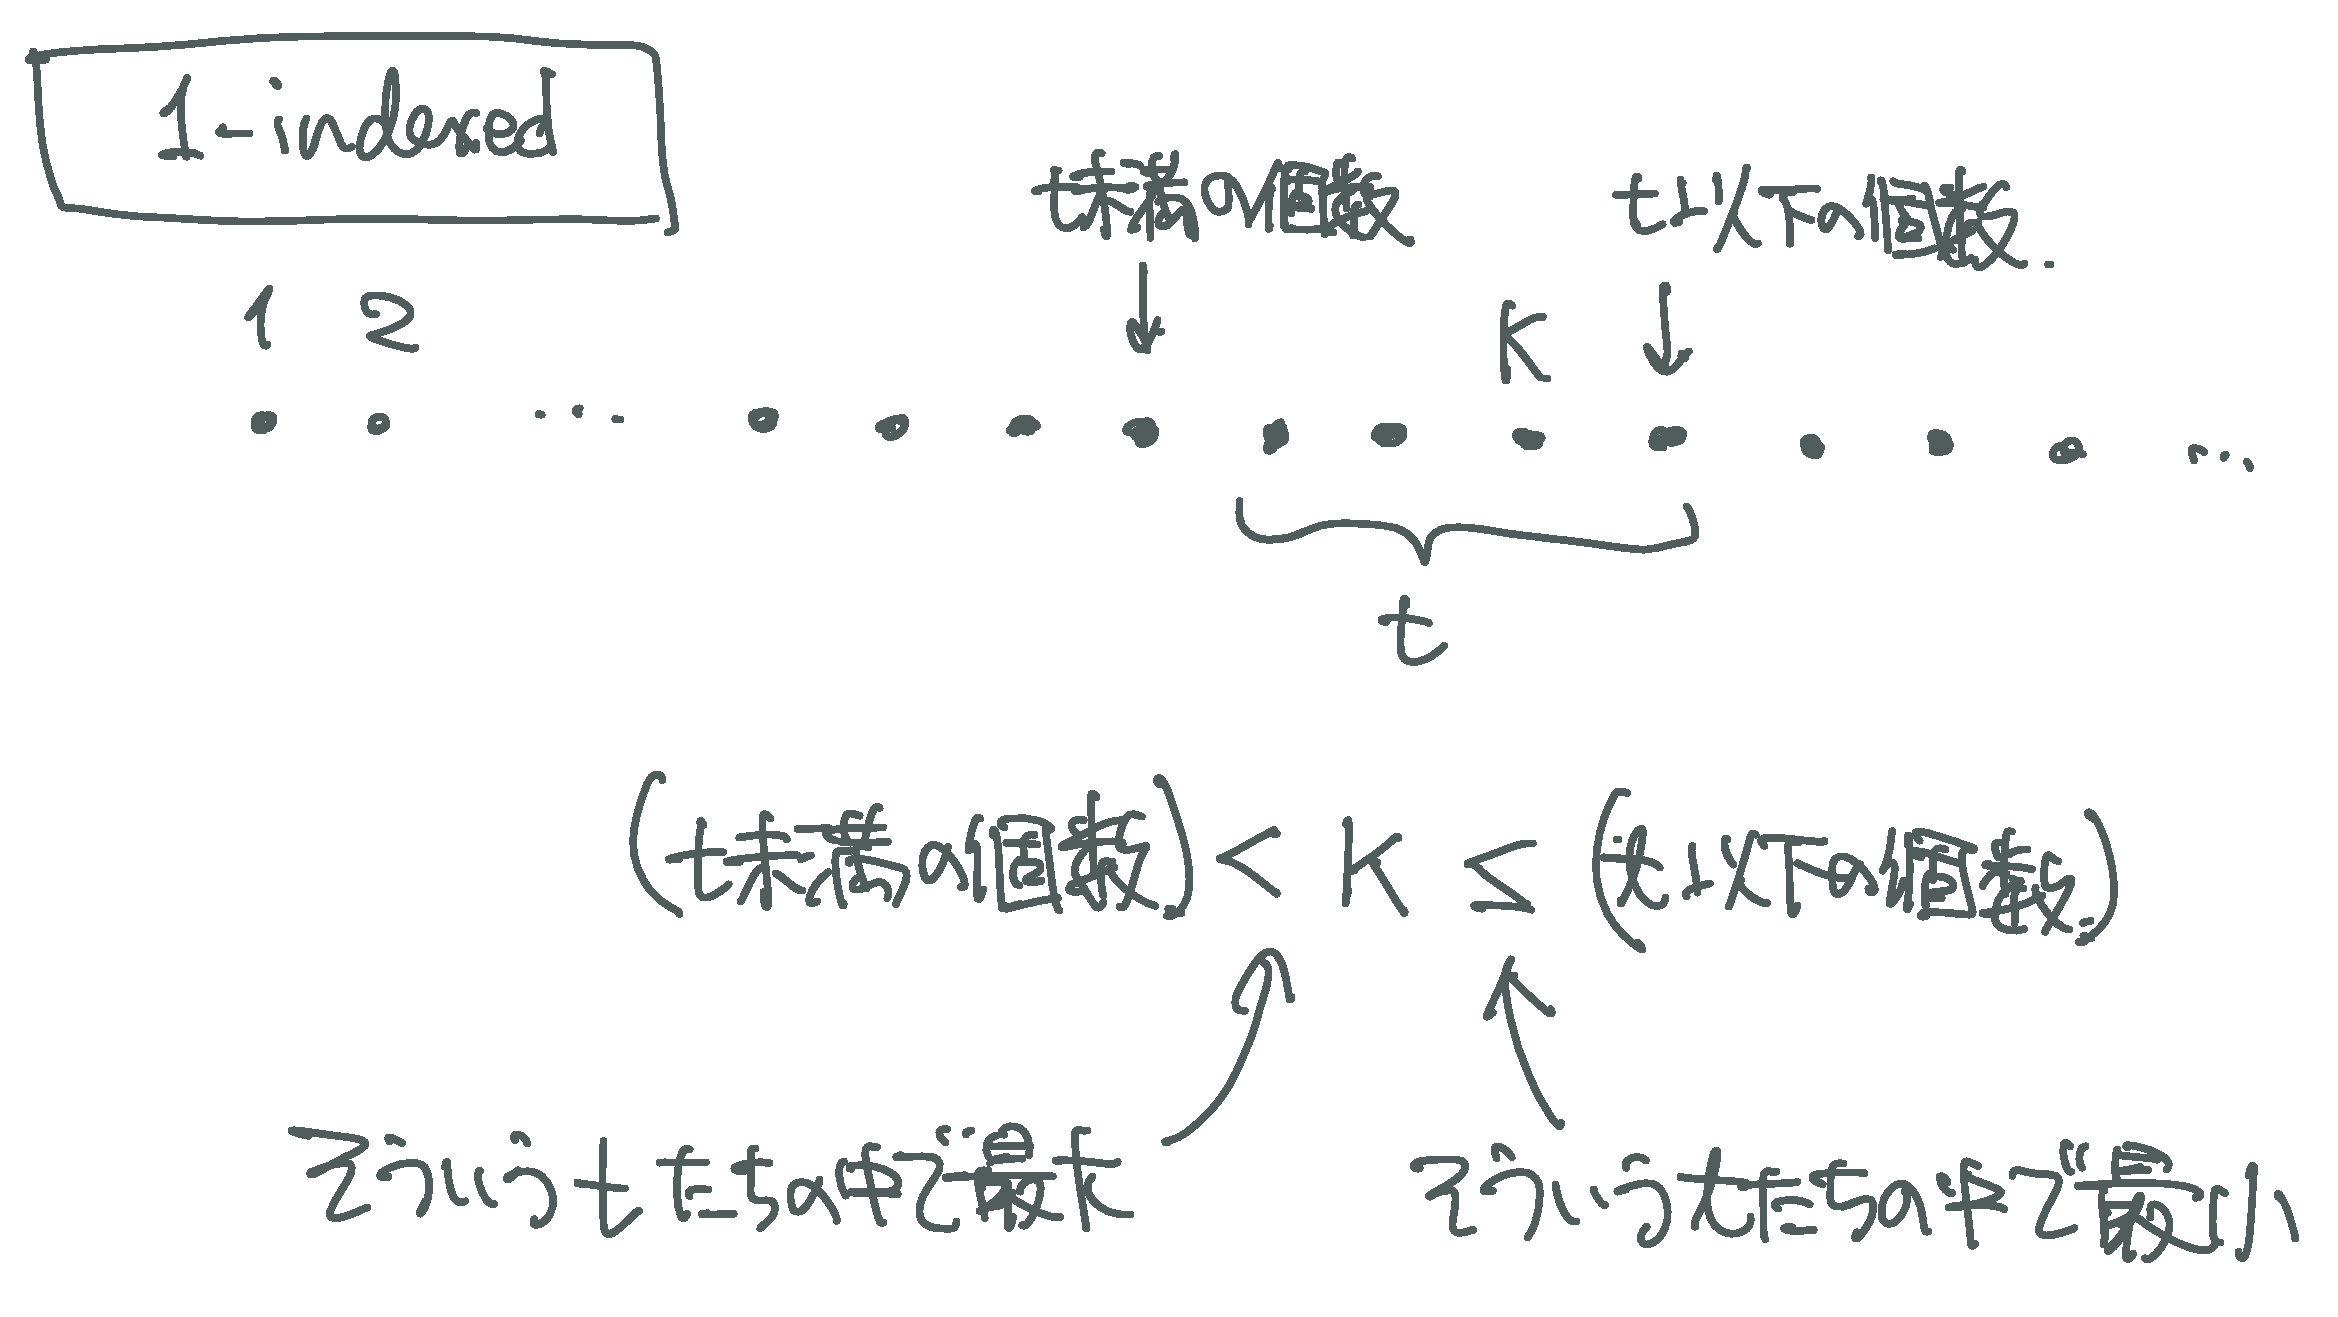 1-indexed
t未満の個数
t以下の個数.
1 2
K
...
...
t
(t未満の個数) < K ≤ (t以下の個数.)
そういうtたちの中で最大
そういうtたちの中で最小